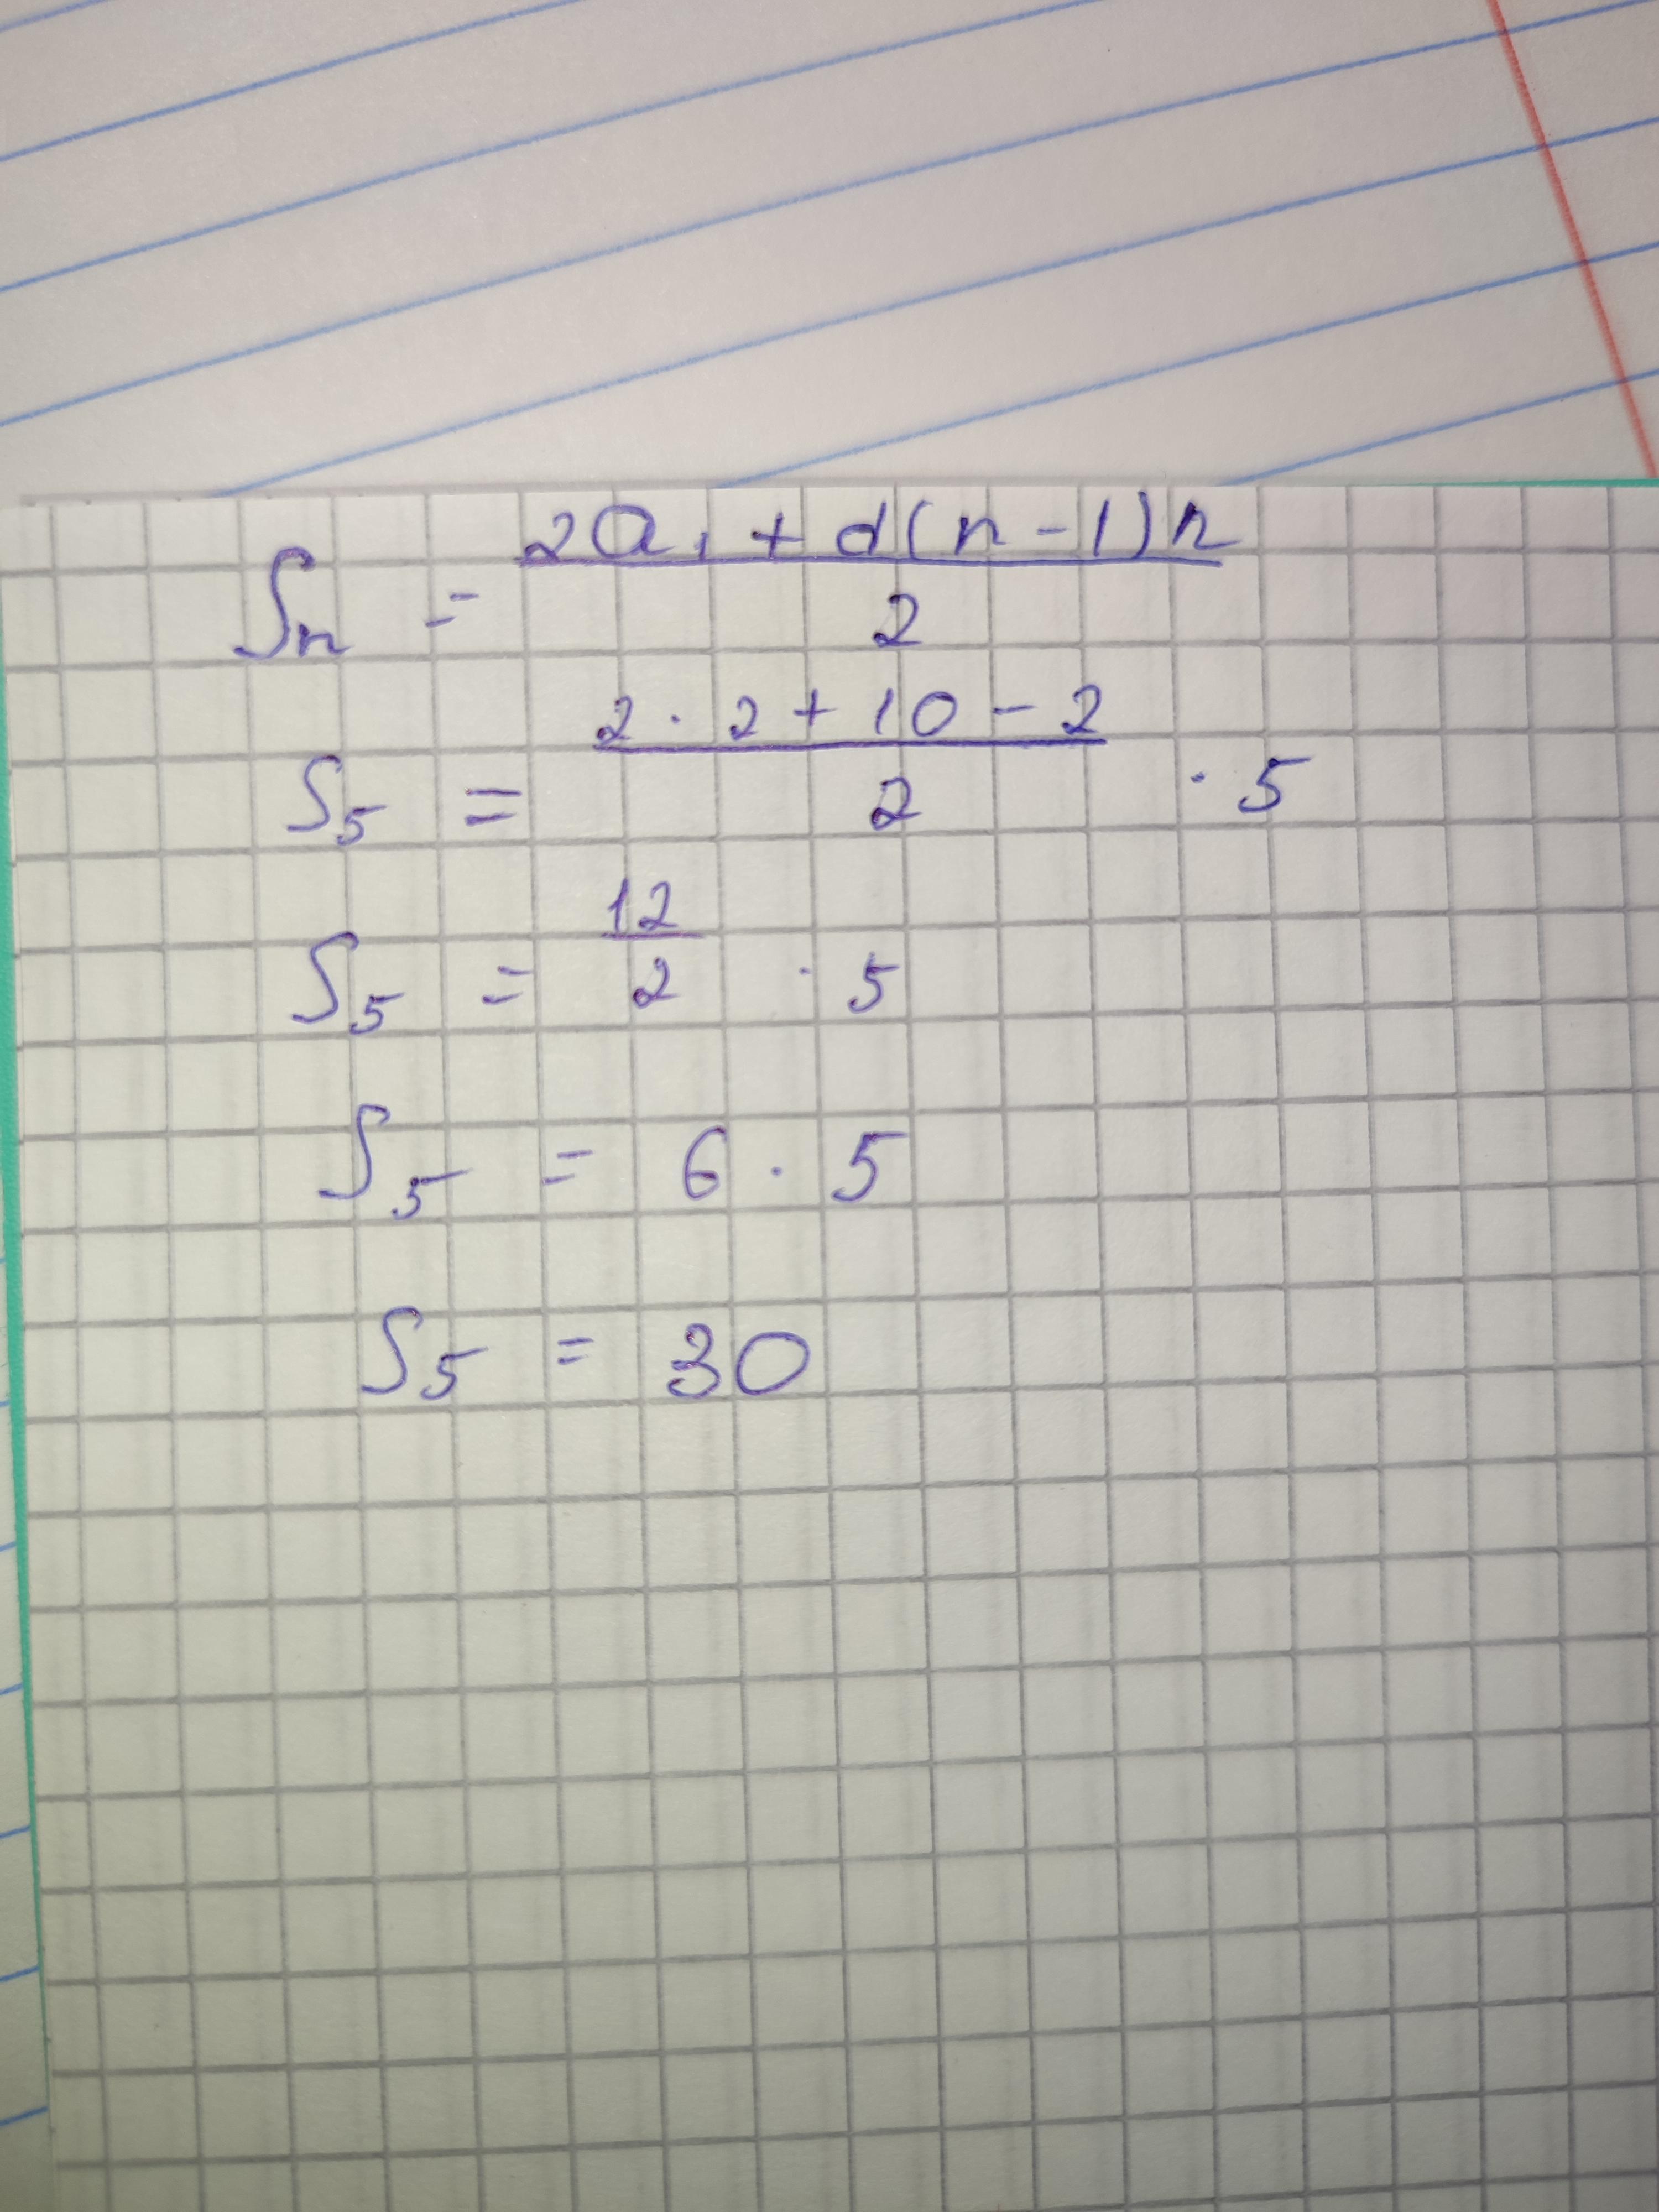 Sn = 2a₁ + d(n - 1)n / 2
S₅ = 2 · 2 + 10 - 2 / 2 · 5
S₅ = 12 / 2 · 5
S₅ = 6 · 5
S₅ = 30